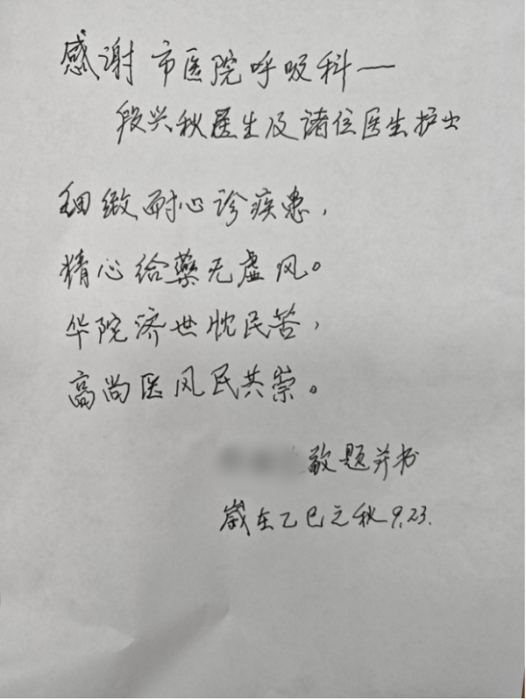 感谢市医院呼吸科一
段兴秋医生及诸位医生护士
细緻耐心诊疾患，
精心给藥无虚风。
华院济世忧民苦，
高尚医风民共崇。
敬题并书
歲在乙巳之秋9.23.